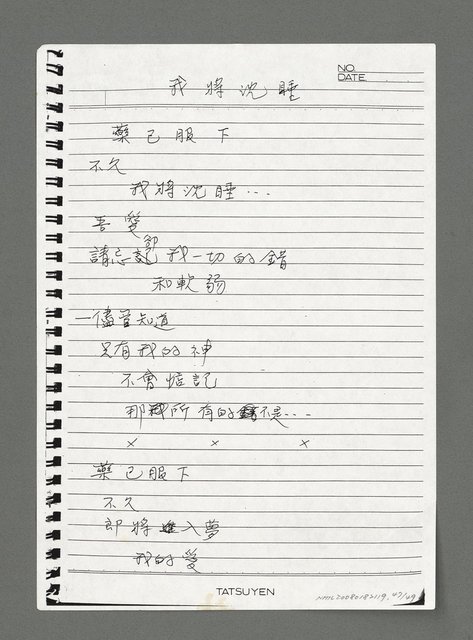 NO.
DATE
我將沈睡
藥已服下
不久
我將沈睡...
吾愛
請忘卻我一切的錯
和軟弱
—儘管知道
只有我的神
不會惦記
那所有的不是...
× × ×
藥已服下
不久
即將進入夢
我的愛
TATSUYEN
NMTL20080182119, 47/49